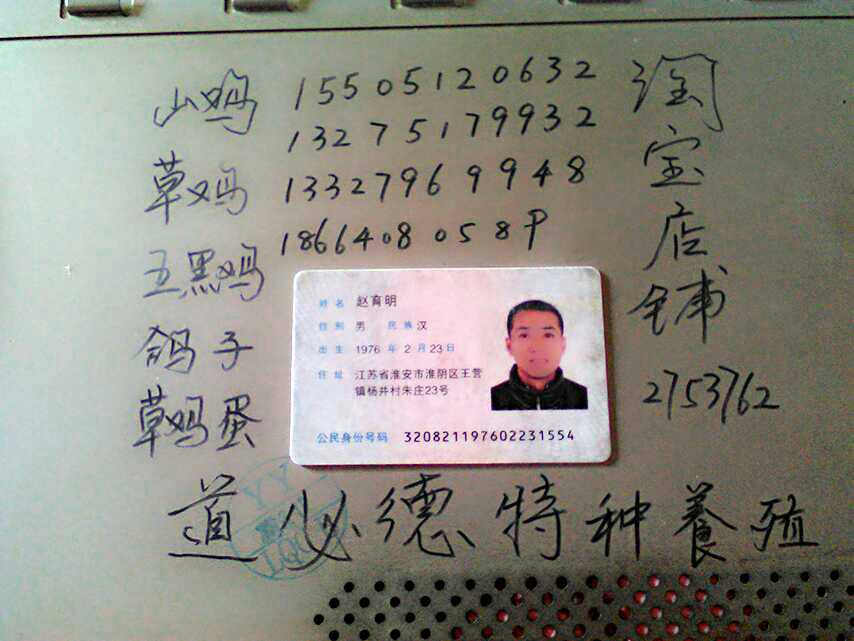 山鸡 15505120632
13275179932
草鸡 13327969948
18664080589
五黑鸡
鸽子
草鸡蛋
淘宝店铺
2753762
姓名 赵育明
性别 男 民族 汉
出生 1976 年 2 月 23 日
住址 江苏省淮安市淮阴区王营
镇杨井村朱庄23号
公民身份号码 320821197602231554
道必德特种養殖